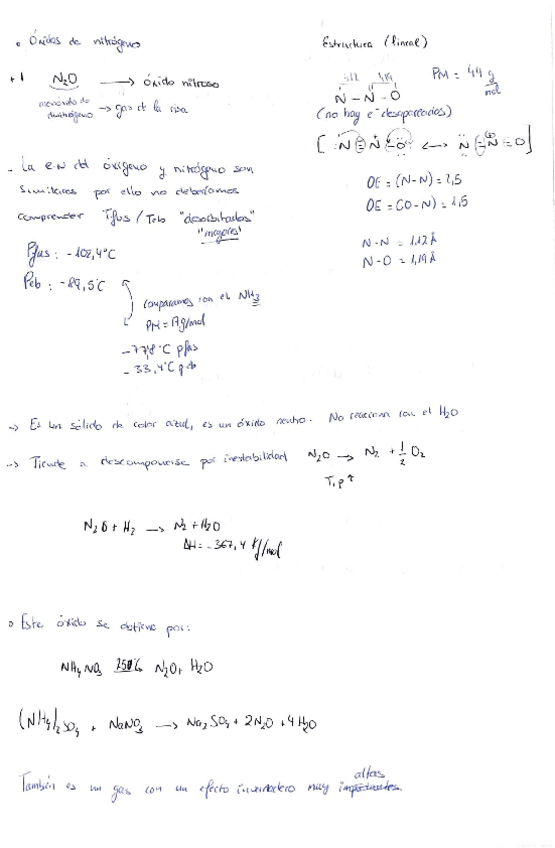 • Óxidos de nitrógeno
+1 N₂O ⟶ óxido nitroso
monóxido de dinitrógeno → gas de la risa
Estructura (lineal)
N – N – O
PM = 44 g/mol
(no hay e⁻ desapareados)
OE = (N-N) = 2,5
OE = (O-N) = 1,5
N-N = 1,12 Å
N-O = 1,19 Å
- La e.N del oxígeno y nitrógeno son
similares por ello no deberíamos
comprender Tfus / Teb "desorbitados"
"mayores"
Pfus: -102,4°C
Peb: -88,5°C
comparamos con el NH₃
PM = 17g/mol
-77,8 °C pfus
-33,4°C peb
→ Es un sólido de color azul, es un óxido neutro. No reacciona con el H₂O
→ Tiende a descomponerse por inestabilidad N₂O → N₂ + 1/2 O₂
T, p ↑
N₂O + H₂ ⟶ N₂ + H₂O
ΔH = -367,4 KJ/mol
• Este óxido se obtiene por:
NH₄NO₃ 250°C N₂O + H₂O
(NH₄)₂SO₄ + NaNO₃ ⟶ Na₂SO₄ + 2N₂O + 4H₂O
altas
También es un gas con un efecto invernadero muy importantes.